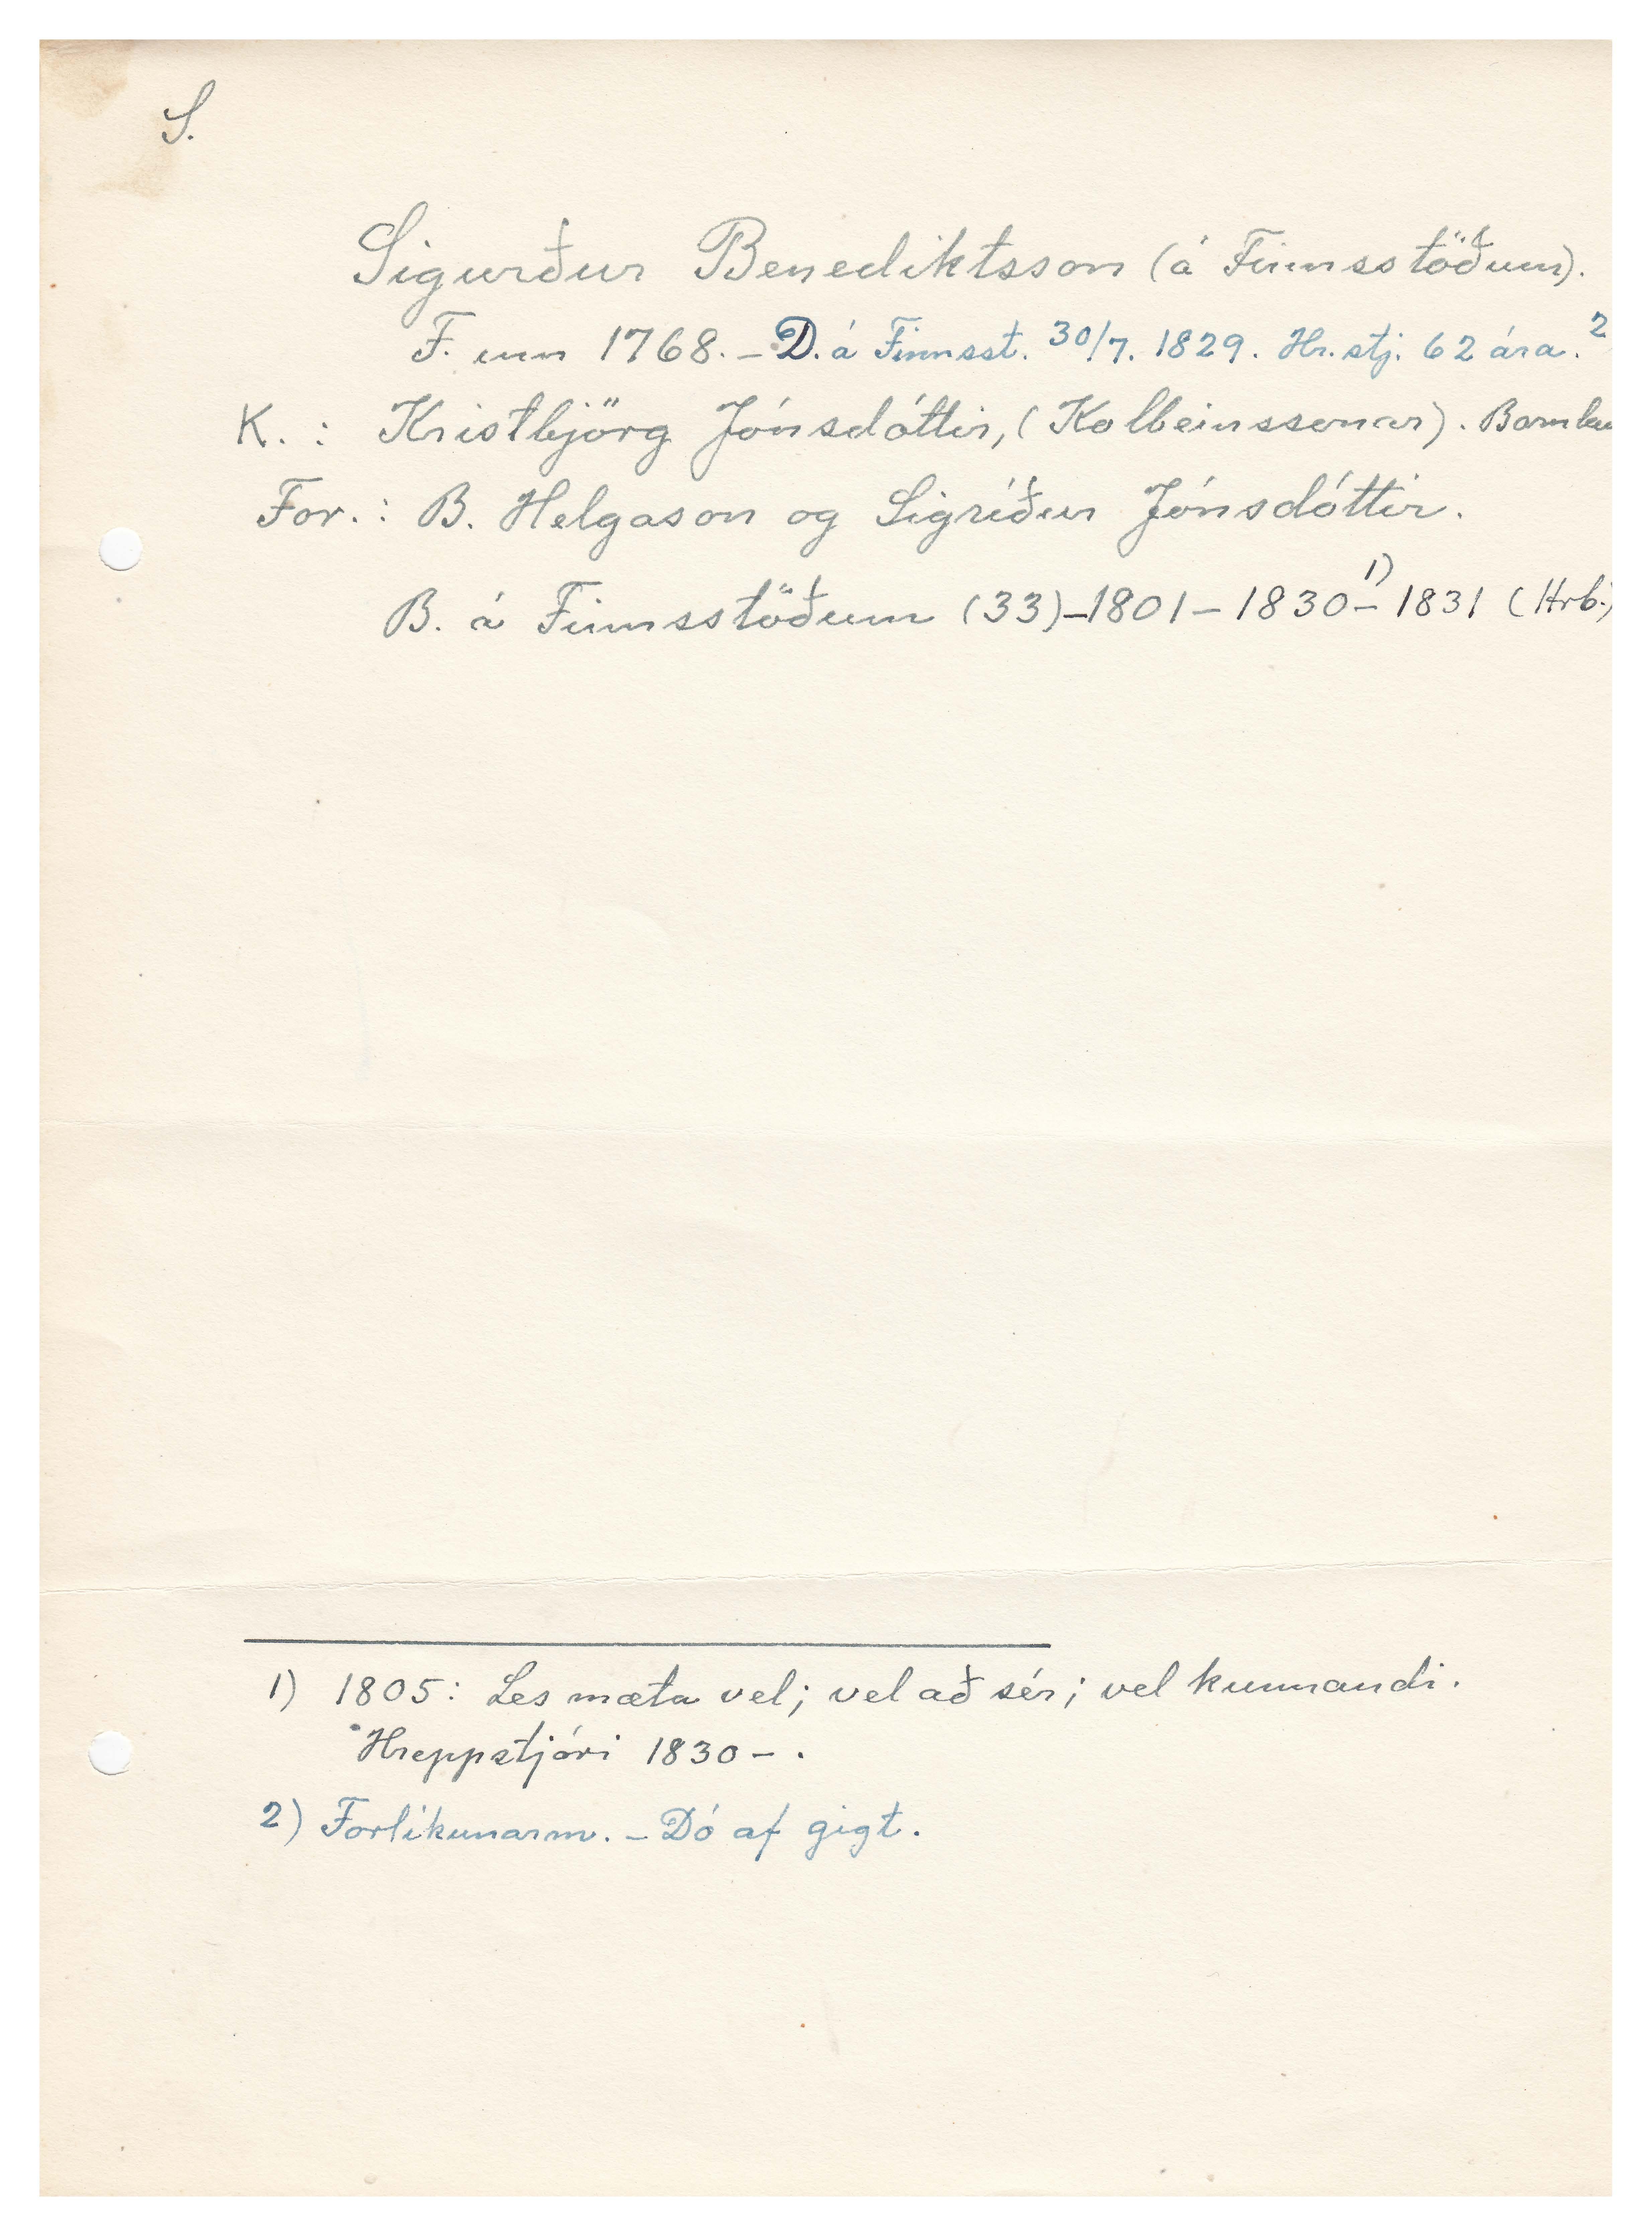 S.
Sigurður Benediktsson (á Finnsstöðum).
F. um 1768. - D. á Finnsst. 30/7. 1829. Hr.stj. 62 ára. 2
K. : Kristbjörg Jónsdóttir, (Kolbeinssonar).
For. : B. Helgason og Sigríður Jónsdóttir.
B. á Finnsstöðum (33)-1801 - 1830 1) - 1831 (Hrb.)
1) 1805: Les mæta vel; vel að sér; vel kunnandi.
Hreppstjóri 1830 - .
2) Forlíkunarm. - Dó af gigt.